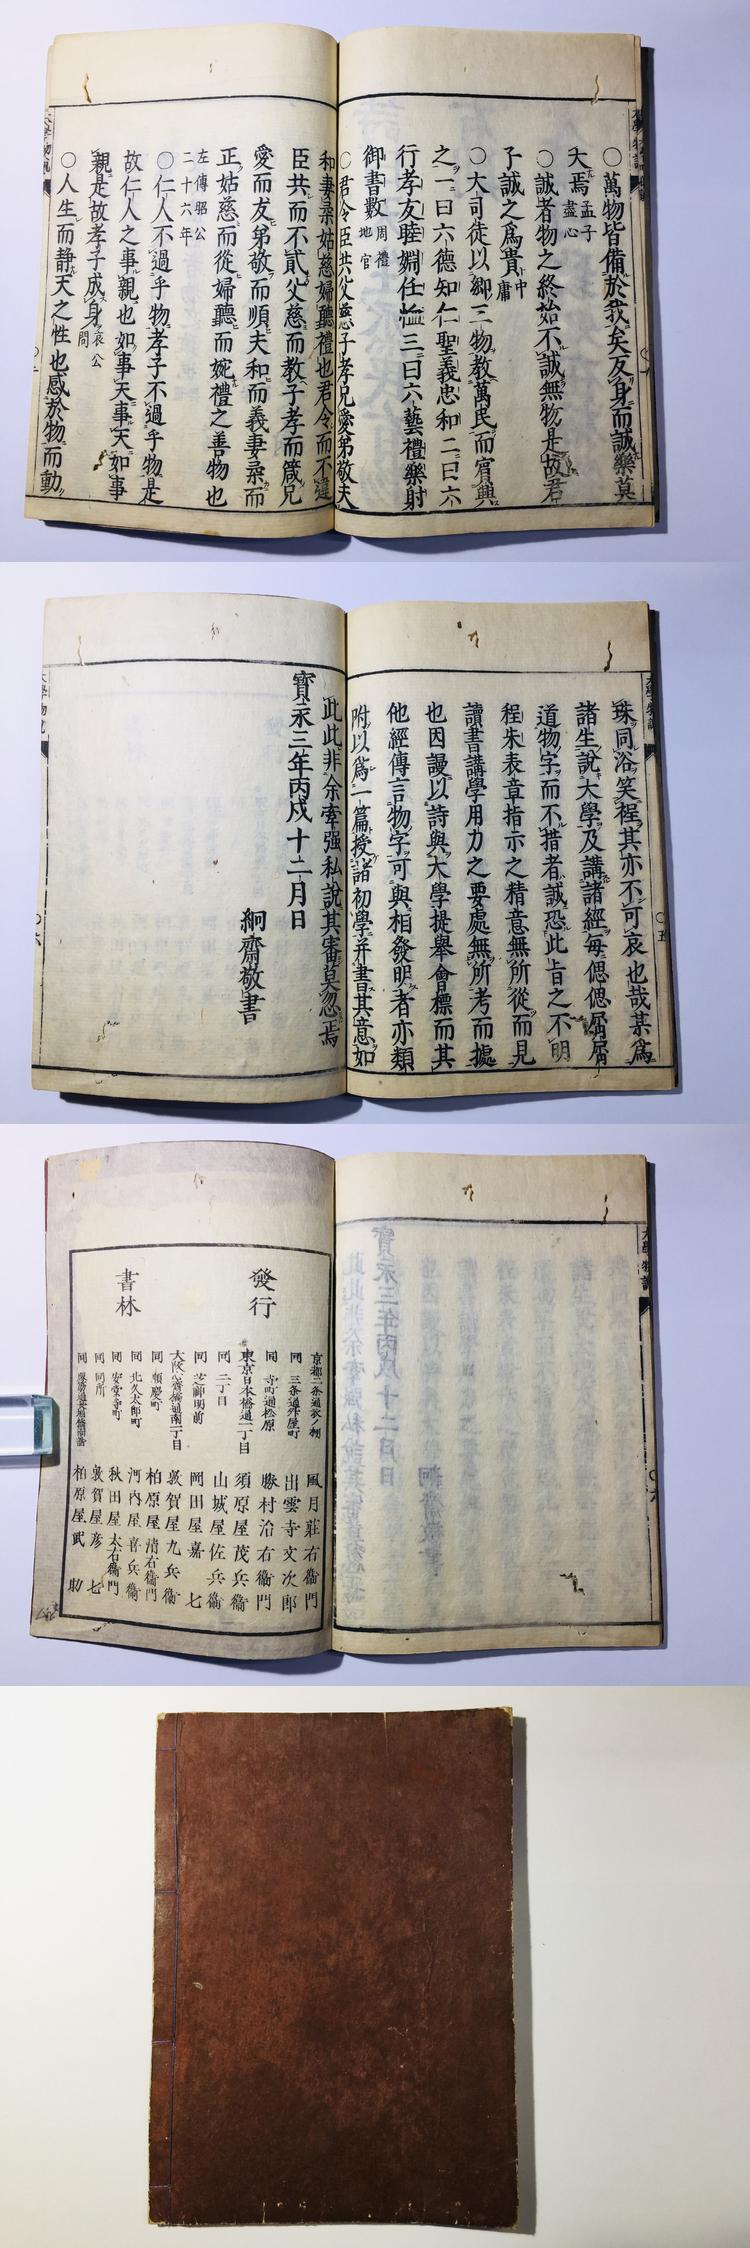 ○萬物皆備於我矣反身而誠樂莫
大焉孟子盡心
○誠者物之終始不誠無物是故君
子誠之爲貴中庸
○大司徒以鄕三物教萬民而賓興
之一曰六德知仁聖義忠和二曰六
行孝友睦婣任恤三曰六藝禮樂射
御書數周禮地官
○君令臣共父慈子孝兄愛弟敬夫
和妻柔姑慈婦聽禮也君令而不違
臣共而不貳父慈而教子孝而箴兄
愛而友弟敬而順夫和而義妻柔而
正姑慈而從婦聽而婉禮之善物也
左傳昭公二十六年
○仁人不過乎物孝子不過乎物是
故仁人之事親也如事天事天如事
親是故孝子成身哀公問
○人生而静天之性也感於物而動
大學物說
珠同浴笑裎其亦不可哀也哉某爲
諸生說大學及講諸經每偲偲屑屑
道物字而不措者誠恐此旨之不明
程朱表章指示之精意無所從而見
讀書講學用力之要處無所考而據
也因謾以詩與大學提舉會標而其
他經傳言物字可與相發明者亦類
附以爲一篇授諸初學并書其意如
此此非余牽强私說其審莫忽焉
寶永三年丙戌十二月日
絅齋敬書
大學物說
○五
○六
大學物說
發行
書林
京都二条通衣ノ棚 風月莊右衞門
同 三条通舛屋町 出雲寺文次郎
同 寺町通松原 勝村治右衞門
東京日本橋通一丁目 須原屋茂兵衞
同 二丁目 山城屋佐兵衞
同 芝神明前 岡田屋嘉七
大阪心齋橋通南一丁目 敦賀屋九兵衞
同 順慶町 柏原屋清右衞門
同 北久太郎町 河内屋喜兵衞
同 安堂寺町 秋田屋太右衞門
同 同所 敦賀屋彦七
同 柏原屋武助